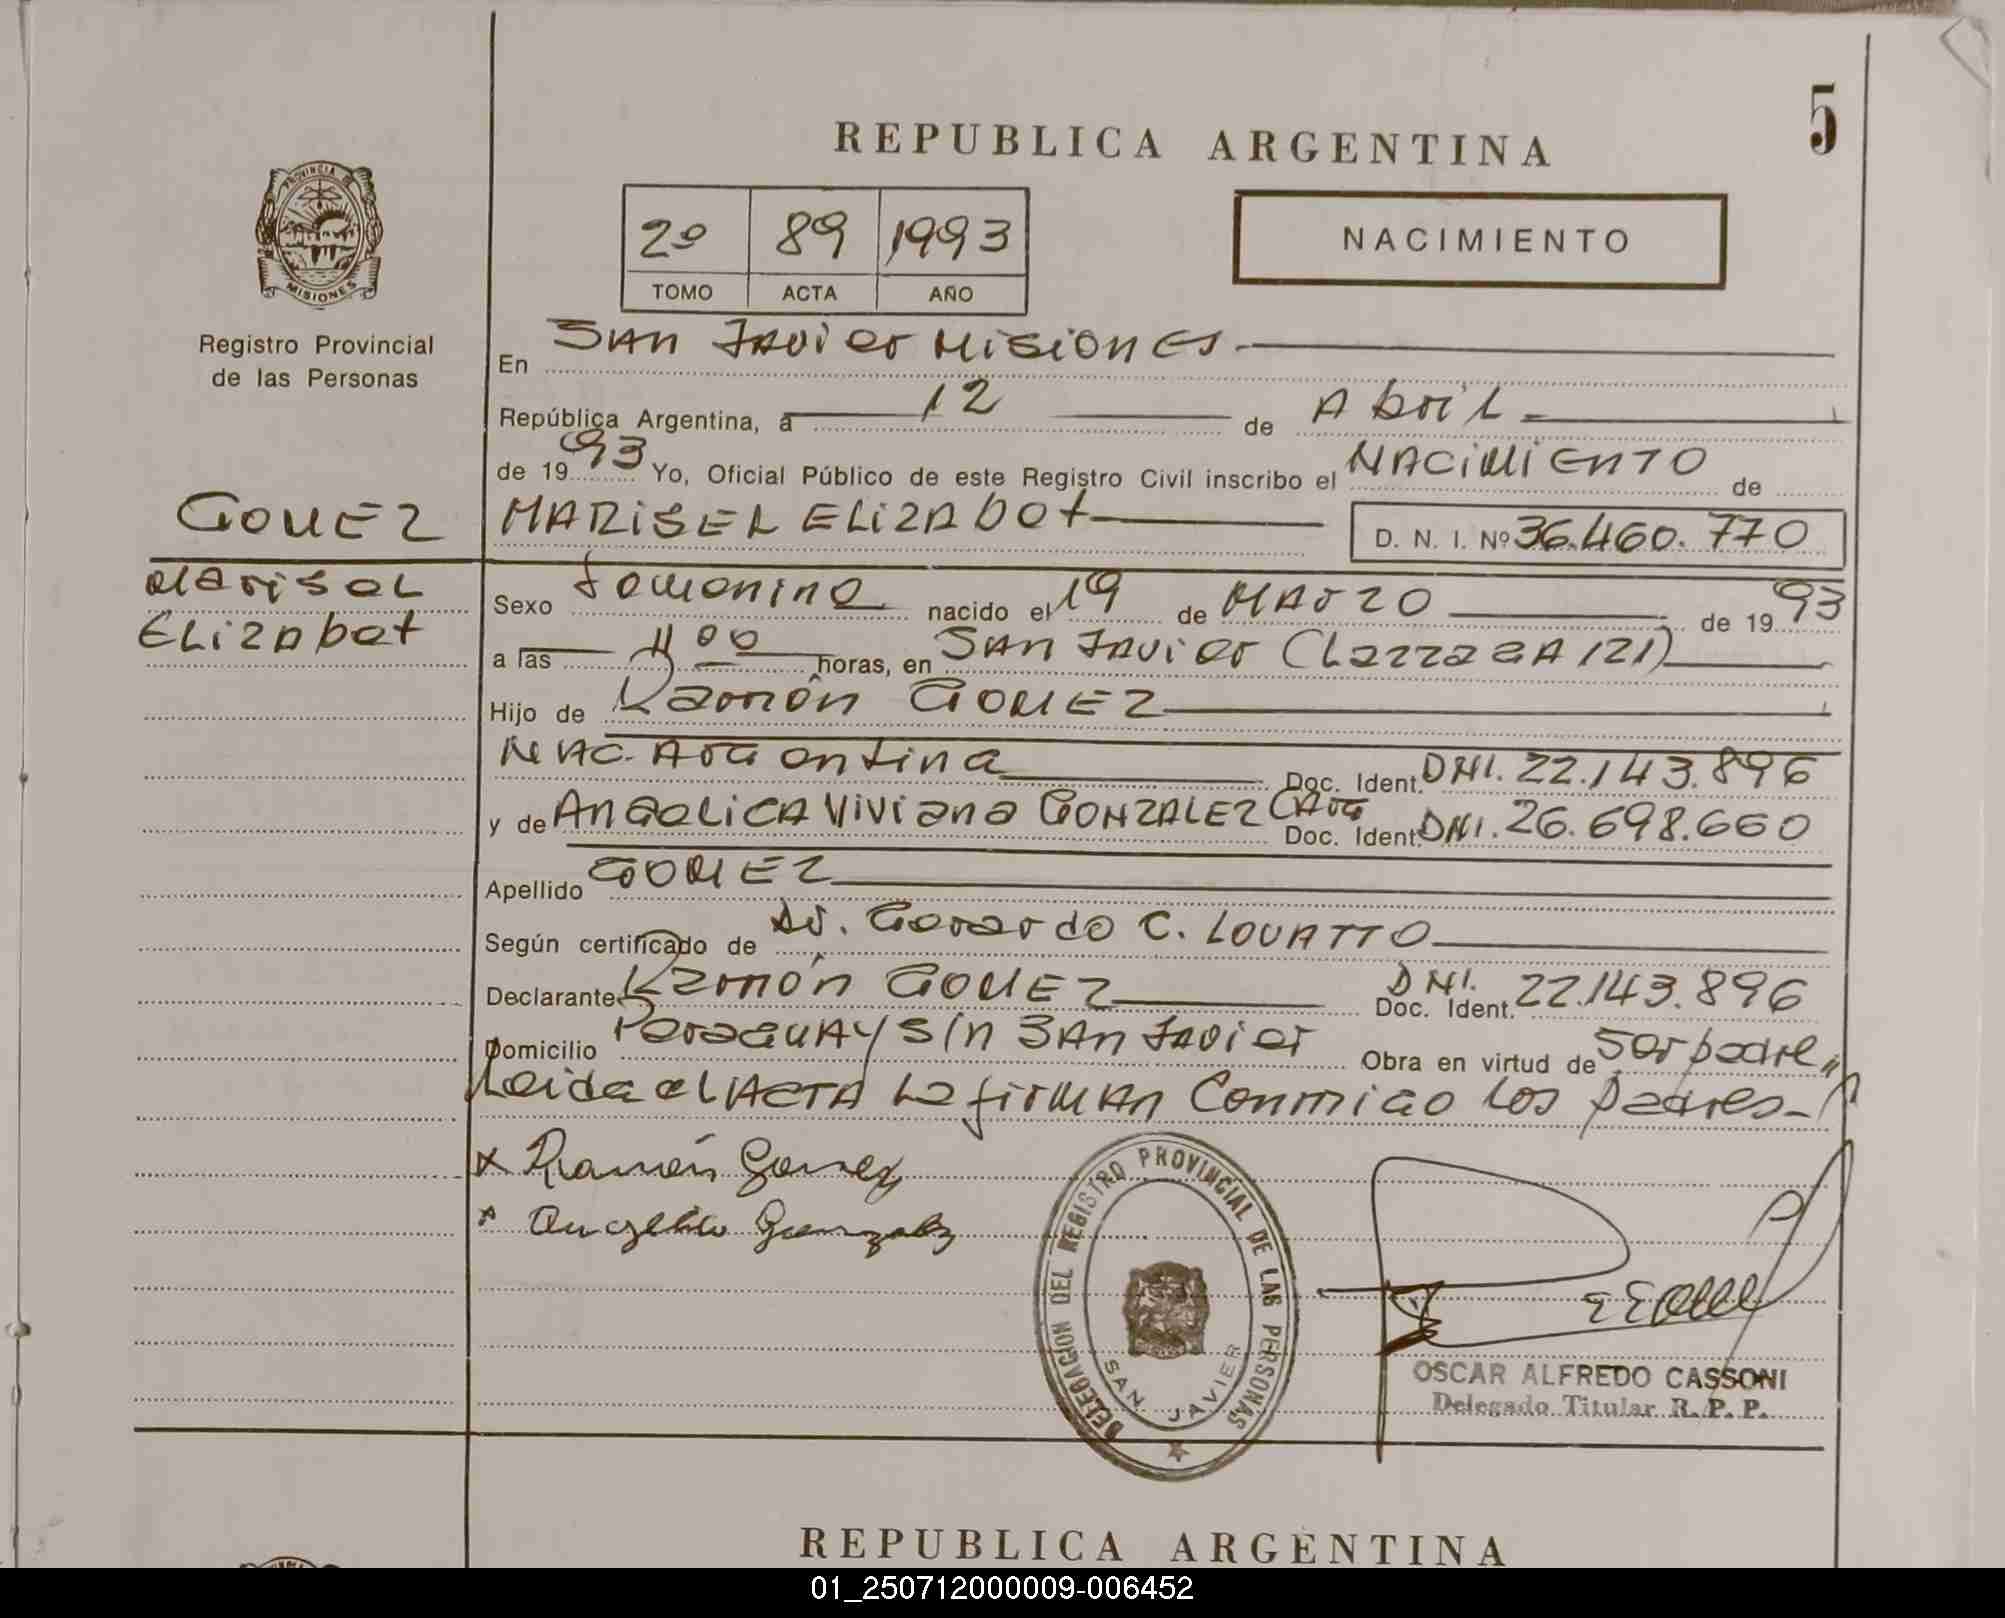 5
REPUBLICA ARGENTINA
PROVINCIA DE
MISIONES
Registro Provincial
de las Personas
2º 89 1993
TOMO ACTA AÑO
NACIMIENTO
En San Javier Misiones
República Argentina, a 12 de Abril
de 1993 Yo, Oficial Público de este Registro Civil inscribo el NACIMIENTO de
GOMEZ
MARISEL ELizAbet D. N. I. Nº 36.460.770
Marisel
Elizabet
Sexo femenino nacido el 19 de Marzo de 1993
a las 11 00 horas, en San Javier (Larrea 121)
Hijo de Ramón GOMEZ
NAC. Argentina Doc. Ident. DNI. 22.143.896
y de Angelica Viviana GONZALEZ (Arg Doc. Ident. DNI. 26.698.660
Apellido GOMEZ
Según certificado de Dr. Gerardo C. LOVATTO
Declarante Ramón GOMEZ DNI. Doc. Ident. 22.143.896
Domicilio Paraguay s/n San Javier Obra en virtud de ser padre,,
Leida el ACTA la firman Conmigo los padres-
x Ramón Gomez
x Angelica Gonzalez
DELEGACION DEL REGISTRO PROVINCIAL DE LAS PERSONAS
SAN JAVIER
OSCAR ALFREDO CASSONI
Delegado Titular R. P. P.
REPUBLICA ARGENTINA
01_250712000009-006452